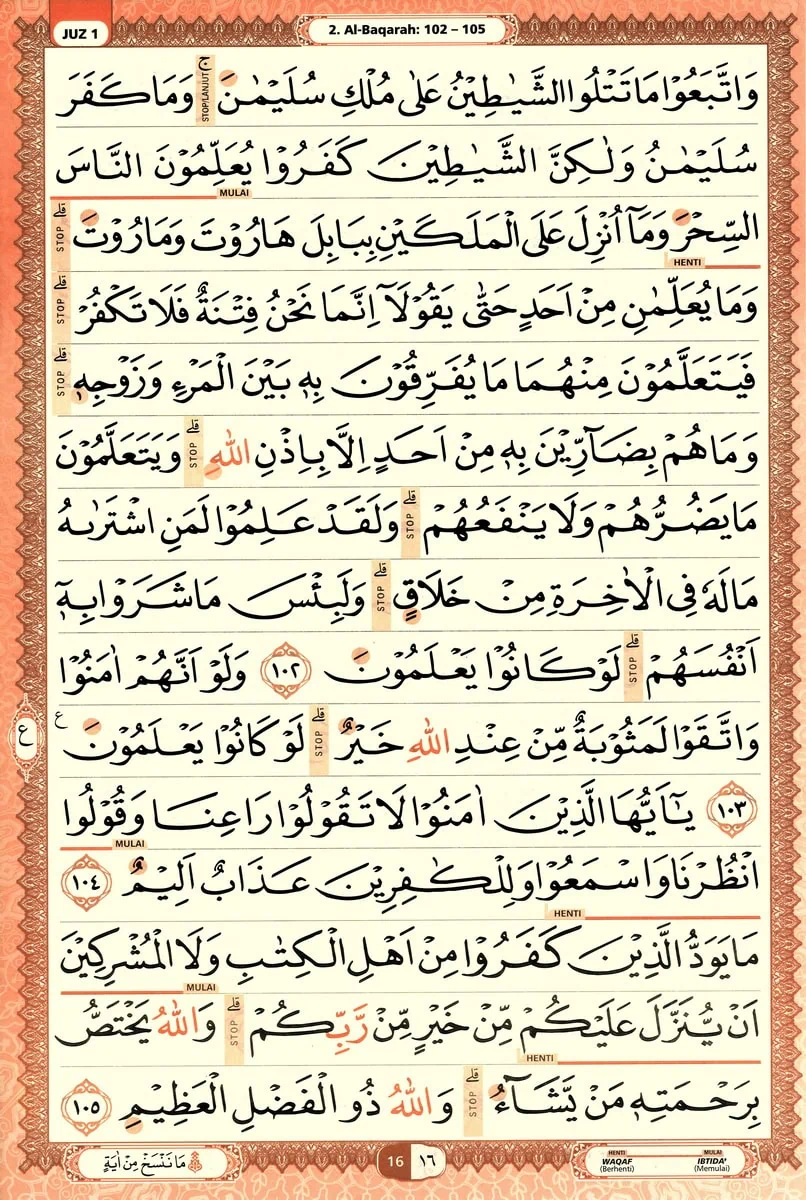 JUZ 1
2. Al-Baqarah: 102 – 105
وَاتَّبَعُوْا مَا تَتْلُوا الشَّيٰطِيْنُ عَلٰى مُلْكِ سُلَيْمٰنَ ۚ STOP/LANJUT وَمَا كَفَرَ
سُلَيْمٰنُ وَلٰكِنَّ الشَّيٰطِيْنَ كَفَرُوْا يُعَلِّمُوْنَ النَّاسَ
MULAI
السِّحْرَ وَمَآ اُنْزِلَ عَلَى الْمَلَكَيْنِ بِبَابِلَ هَارُوْتَ وَمَارُوْتَ ۗ STOP
HENTI
وَمَا يُعَلِّمٰنِ مِنْ اَحَدٍ حَتّٰى يَقُوْلَآ اِنَّمَا نَحْنُ فِتْنَةٌ فَلَا تَكْفُرْ ۗ STOP
فَيَتَعَلَّمُوْنَ مِنْهُمَا مَا يُفَرِّقُوْنَ بِهٖ بَيْنَ الْمَرْءِ وَزَوْجِهٖ ۗ STOP
وَمَا هُمْ بِضَاۤرِّيْنَ بِهٖ مِنْ اَحَدٍ اِلَّا بِاِذْنِ اللّٰهِ ۗ STOP وَيَتَعَلَّمُوْنَ
مَا يَضُرُّهُمْ وَلَا يَنْفَعُهُمْ ۗ STOP وَلَقَدْ عَلِمُوْا لَمَنِ اشْتَرٰىهُ
مَا لَهٗ فِى الْاٰخِرَةِ مِنْ خَلَاقٍ ۗ STOP وَلَبِئْسَ مَا شَرَوْا بِهٖٓ
اَنْفُسَهُمْ ۗ STOP لَوْ كَانُوْا يَعْلَمُوْنَ ١٠٢ وَلَوْ اَنَّهُمْ اٰمَنُوْا
وَاتَّقَوْا لَمَثُوْبَةٌ مِّنْ عِنْدِ اللّٰهِ خَيْرٌ ۗ STOP لَوْ كَانُوْا يَعْلَمُوْنَ ع
ع
١٠٣ يٰٓاَيُّهَا الَّذِيْنَ اٰمَنُوْا لَا تَقُوْلُوْا رَاعِنَا وَقُوْلُوا
MULAI
انْظُرْنَا وَاسْمَعُوْا وَلِلْكٰفِرِيْنَ عَذَابٌ اَلِيْمٌ ١٠٤
HENTI
مَا يَوَدُّ الَّذِيْنَ كَفَرُوْا مِنْ اَهْلِ الْكِتٰبِ وَلَا الْمُشْرِكِيْنَ
MULAI
اَنْ يُّنَزَّلَ عَلَيْكُمْ مِّنْ خَيْرٍ مِّنْ رَّبِّكُمْ ۗ STOP وَاللّٰهُ يَخْتَصُّ
HENTI
بِرَحْمَتِهٖ مَنْ يَّشَاۤءُ ۗ STOP وَاللّٰهُ ذُو الْفَضْلِ الْعَظِيْمِ ١٠٥
مَا نَنْسَخْ مِنْ اٰيَةٍ
16 ١٦
HENTI MULAI
WAQAF IBTIDA'
(Berhenti) (Memulai)